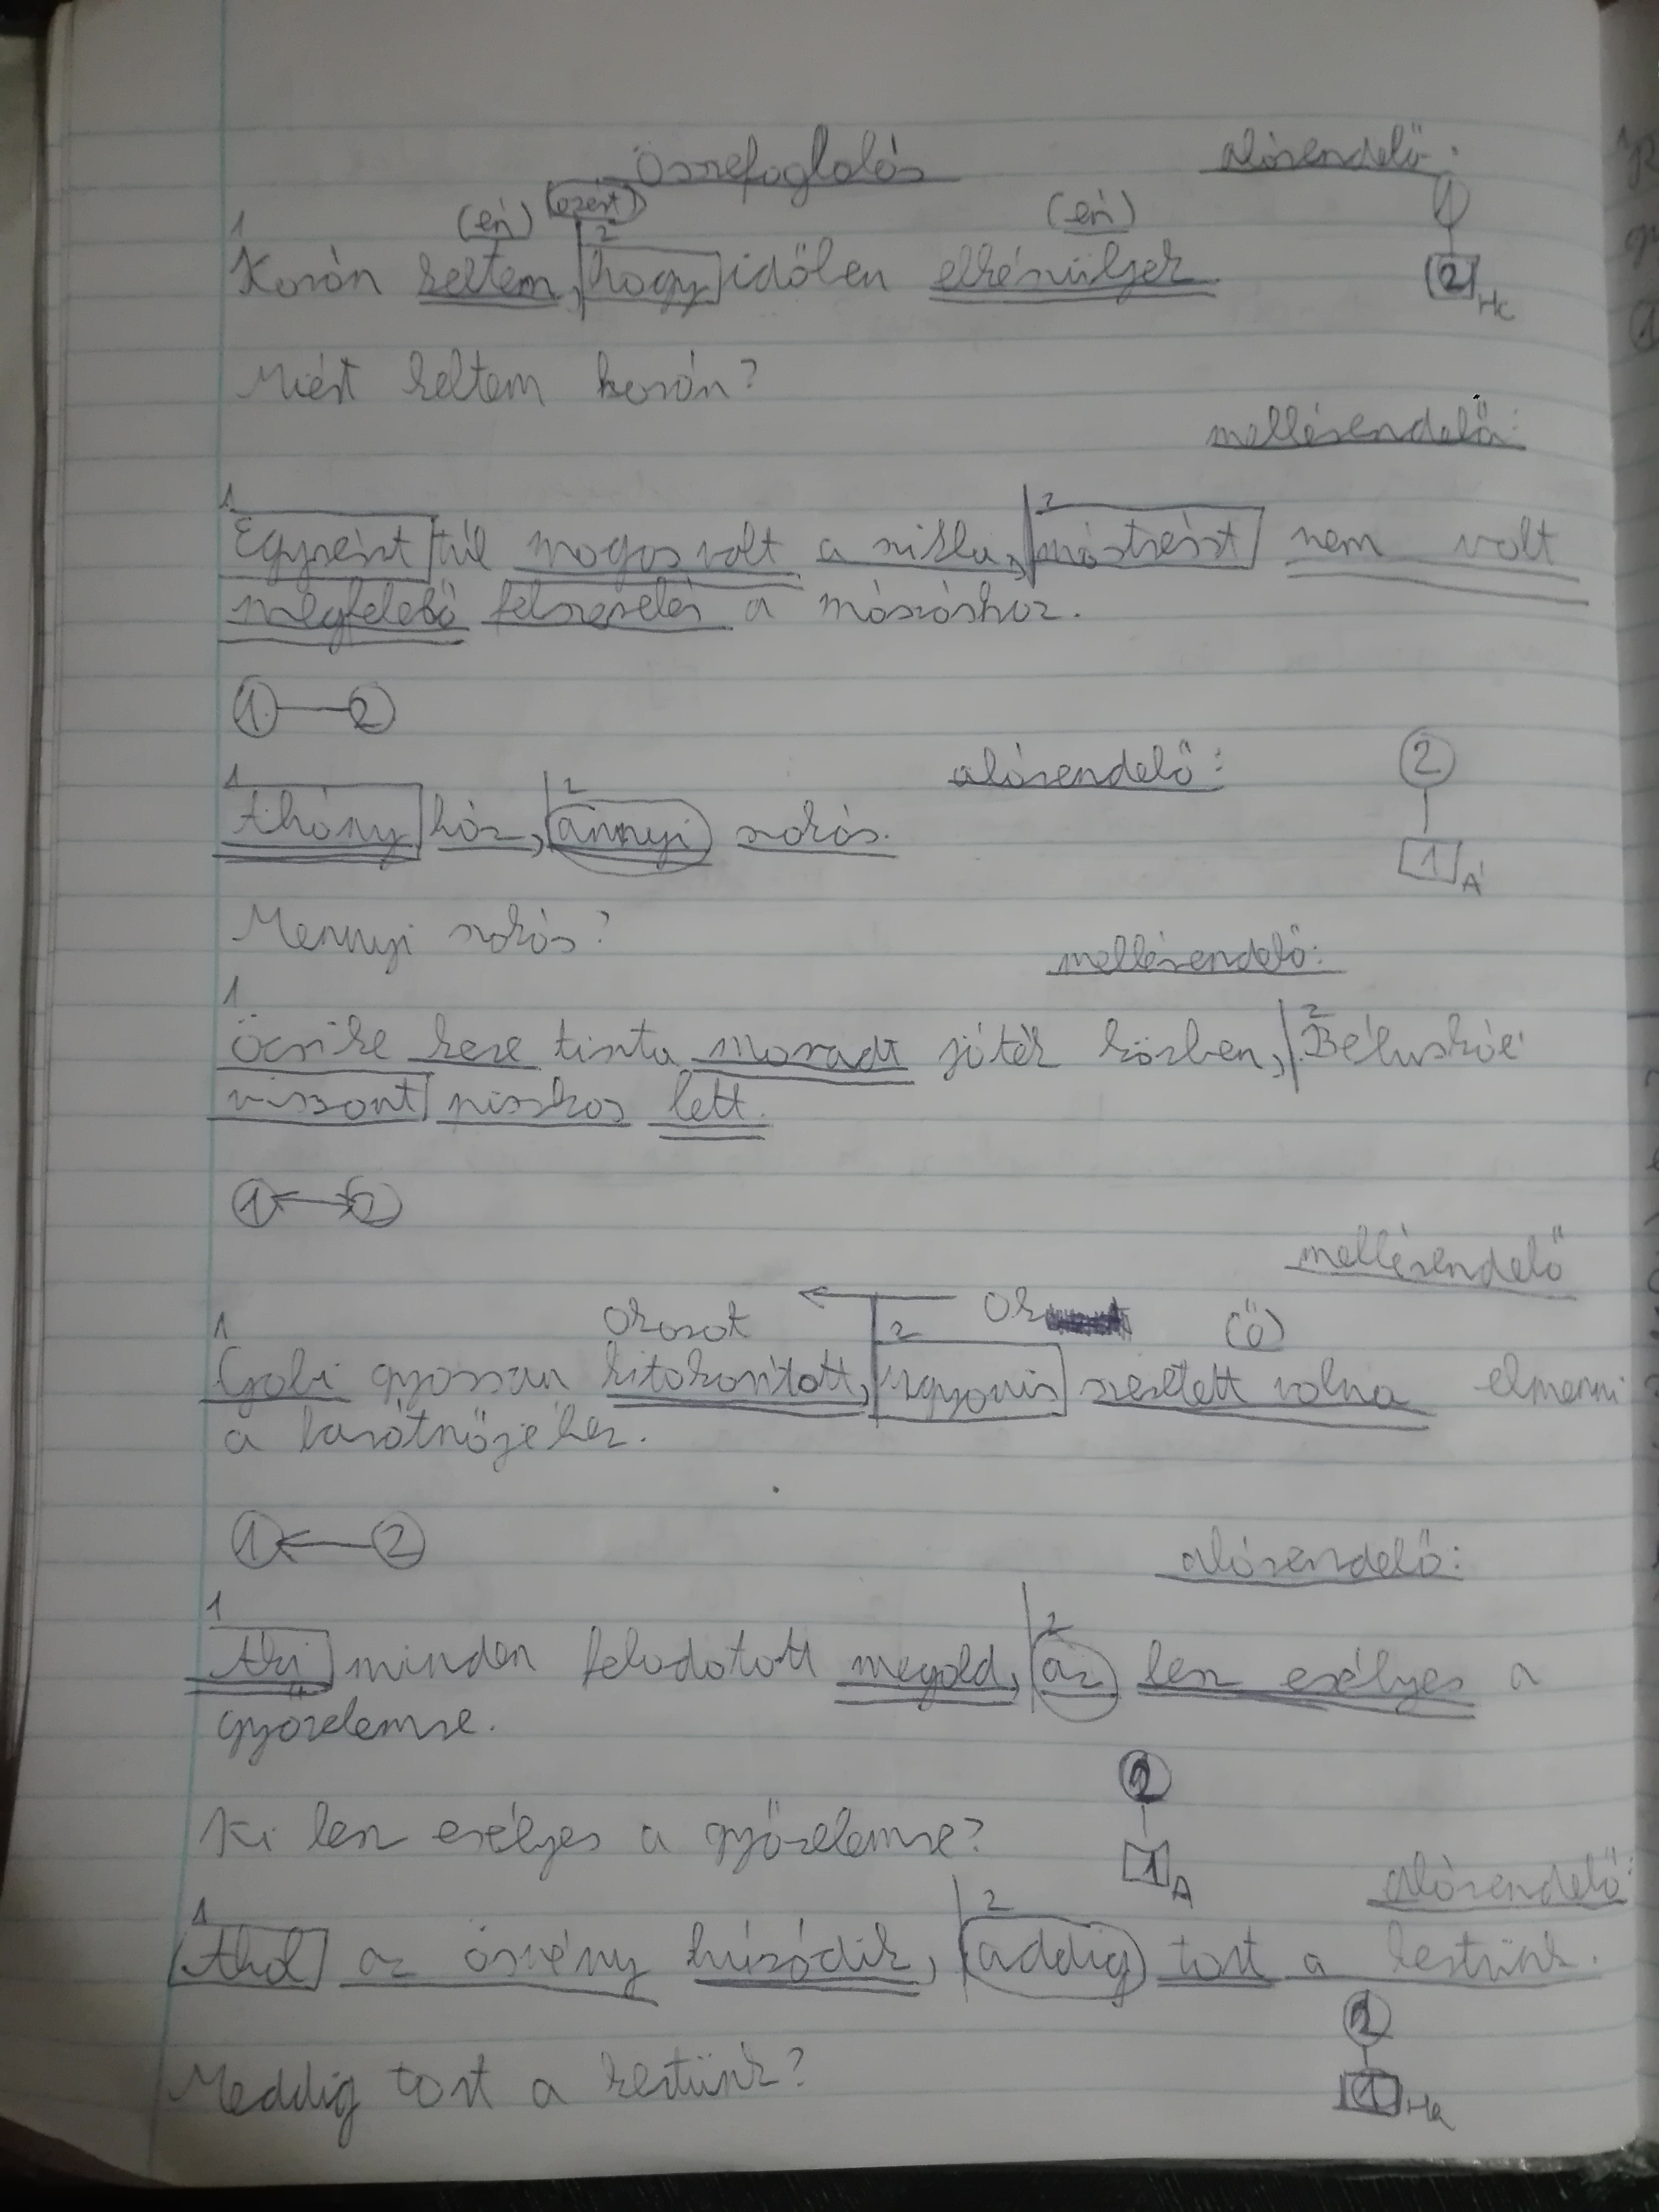 Összefoglalás
alárendelő:
1 (én) (azért) 2 (én)
Korán keltem, hogy időben elkészüljek.
1
2 Hc
Miért keltem korán?
mellérendelő:
1 2
Egyrészt túl magas volt a szikla, másrészt nem volt
megfelelő felszerelés a mászáshoz.
1 2
alárendelő: 2
1 2
Ahány ház, annyi szokás.
1 Á
Mennyi szokás?
mellérendelő:
1 2
Öcsike keze tiszta maradt játék közben, Béluskáé
viszont piszkos lett.
1 2
mellérendelő
1 Okozat 2 Ok (ő)
Gabi gyorsan kitakarított, ugyanis szeretett volna elmenni
a barátnőjéhez.
1 2
alárendelő:
1 2
Aki minden feladatott megold, az lesz esélyes a
győzelemre.
2
Ki lesz esélyes a győzelemre?
1 A
alárendelő:
1 2
Ahol az ösvény húzódik, addig tart a kertünk.
2
Meddig tart a kertünk?
1 Ha